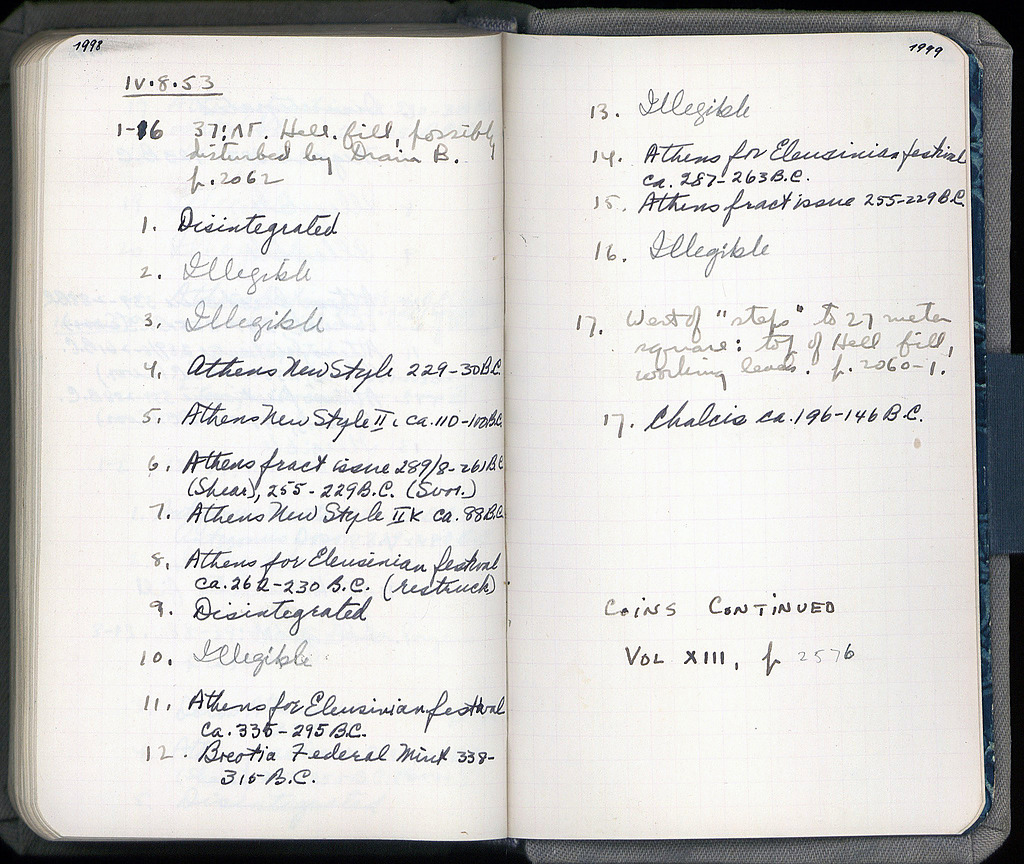 1998
IV.8.53
1-16 37:ΛΓ. Hell. fill, possibly
disturbed by Drain B.
p.2062
1. Disintegrated
2. Illegible
3. Illegible
4. Athens New Style 229-30 B.C.
5. Athens New Style II, ca. 110-100 B.C.
6. Athens fract issue 289/8-261 B.C.
(Shear), 255-229 B.C. (Svor.)
7. Athens New Style IIK ca. 88 B.C.
8. Athens for Eleusinian festival
ca. 262-230 B.C. (restruck)
9. Disintegrated
10. Illegible
11. Athens for Eleusinian festival
ca. 335-295 B.C.
12. Boeotia Federal Mint 338-
315 B.C.
1999
13. Illegible
14. Athens for Eleusinian festival
ca. 287-263 B.C.
15. Athens fract issue 255-229 B.C.
16. Illegible
17. West of "steps" to 27 meter
square: top of Hell fill,
working levels. p. 2060-1.
17. Chalcis ca. 196-146 B.C.
COINS CONTINUED
VOL XIII, p 2576